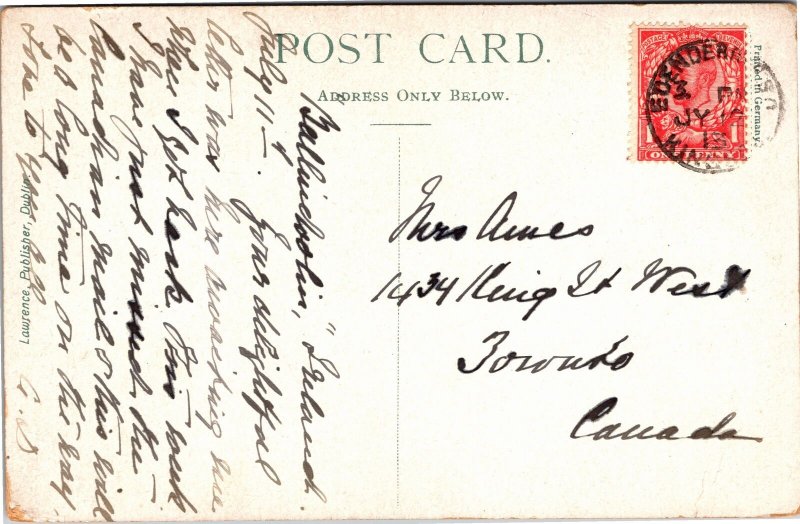 POST CARD.
ADDRESS ONLY BELOW.
Printed in Germany.
EDENDERRY
3 P
JY
13
POSTAGE
ONE PENNY
Mrs Ames
1434 King St West
Toronto
Canada
Ireland.
July 11th. Your delightful
letter was here awaiting me
when I got back this week
I have just missed the
Canadian mail & this will
be a long time on the way.
Love to you all
Lawrence, Publisher, Dublin.